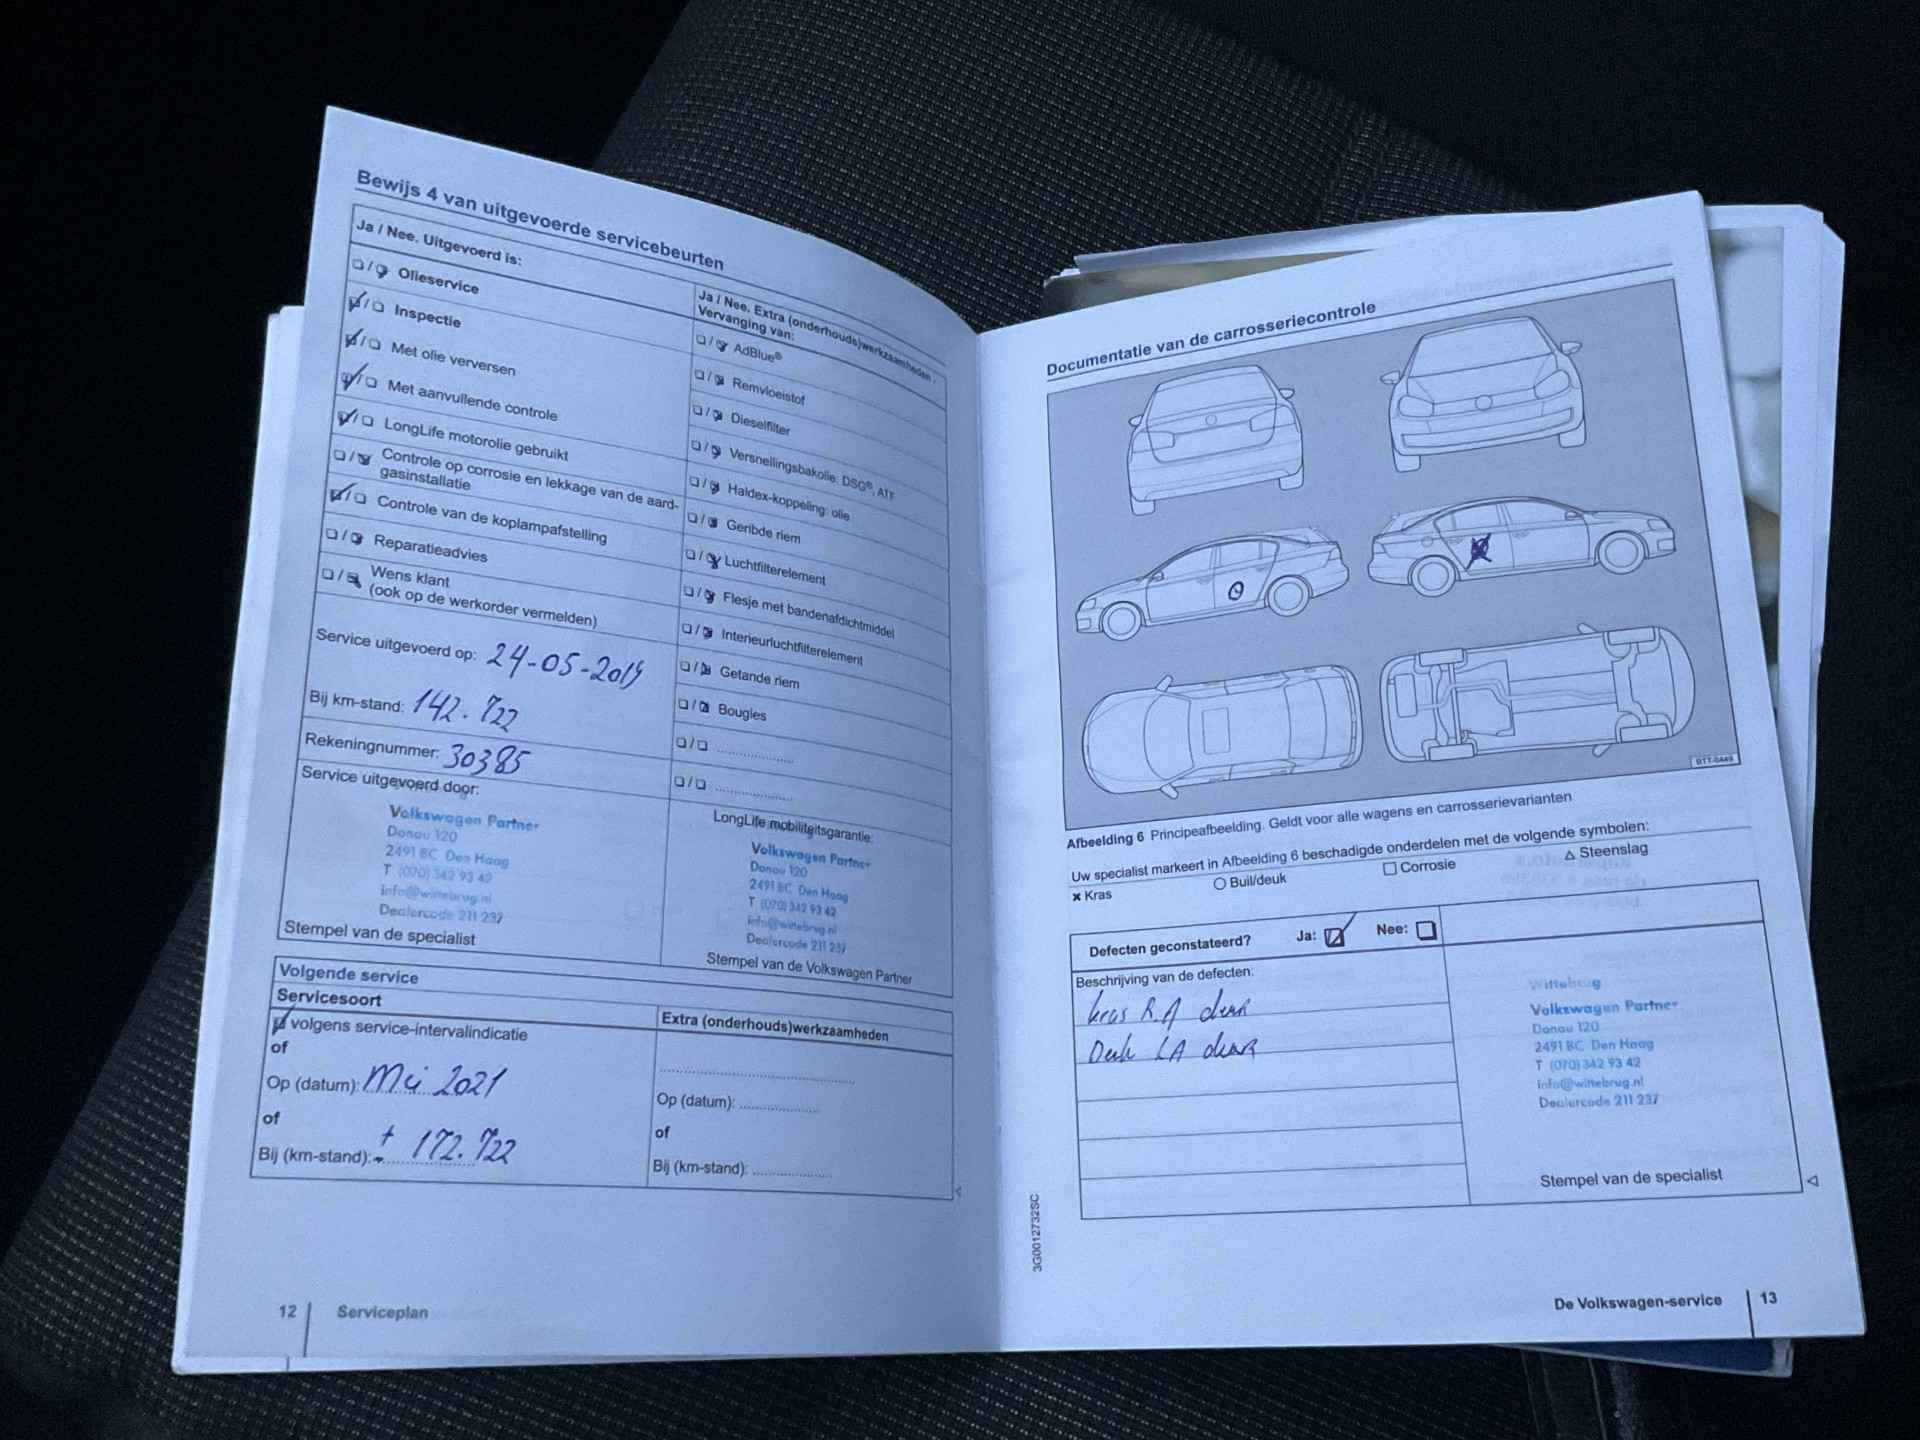 Bewijs 4 van uitgevoerde servicebeurten
Ja / Nee. Uitgevoerd is:
Olieservice
Inspectie
Met olie verversen
Met aanvullende controle
LongLife motorolie gebruikt
Controle op corrosie en lekkage van de aard-
gasinstallatie
Controle van de koplampafstelling
Reparatieadvies
Wens klant
(ook op de werkorder vermelden)
Service uitgevoerd op: 24-05-2019
Bij km-stand: 142.722
Rekeningnummer: 30385
Service uitgevoerd door:
Volkswagen Partner
Donau 120
2491 BC Den Haag
T (070) 342 93 42
info@wittebrug.nl
Dealercode 211 237
Stempel van de specialist
Ja / Nee. Extra (onderhouds)werkzaamheden.
Vervanging van:
AdBlue®
Remvloeistof
Dieselfilter
Versnellingsbakolie: DSG®, ATF
Haldex-koppeling: olie
Geribde riem
Luchtfilterelement
Flesje met bandenafdichtmiddel
Interieurluchtfilterelement
Getande riem
Bougies
LongLife mobiliteitsgarantie:
Volkswagen Partner
Donau 120
2491 BC Den Haag
T (070) 342 93 42
info@wittebrug.nl
Dealercode 211 237
Stempel van de Volkswagen Partner
Volgende service
Servicesoort
volgens service-intervalindicatie
of
Op (datum): Mei 2021
of
Bij (km-stand): ± 172.722
Extra (onderhouds)werkzaamheden
Op (datum):
of
Bij (km-stand):
12 Serviceplan
Documentatie van de carrosseriecontrole
BTT-0449
Afbeelding 6 Principeafbeelding. Geldt voor alle wagens en carrosserievarianten
Uw specialist markeert in Afbeelding 6 beschadigde onderdelen met de volgende symbolen:
x Kras ○ Buil/deuk □ Corrosie △ Steenslag
Defecten geconstateerd? Ja: Nee:
Beschrijving van de defecten:
kras R.A deur
Deuk LA deur
Wittebrug
Volkswagen Partner
Donau 120
2491 BC Den Haag
T (070) 342 93 42
info@wittebrug.nl
Dealercode 211 237
Stempel van de specialist
3G0012732SC
De Volkswagen-service 13